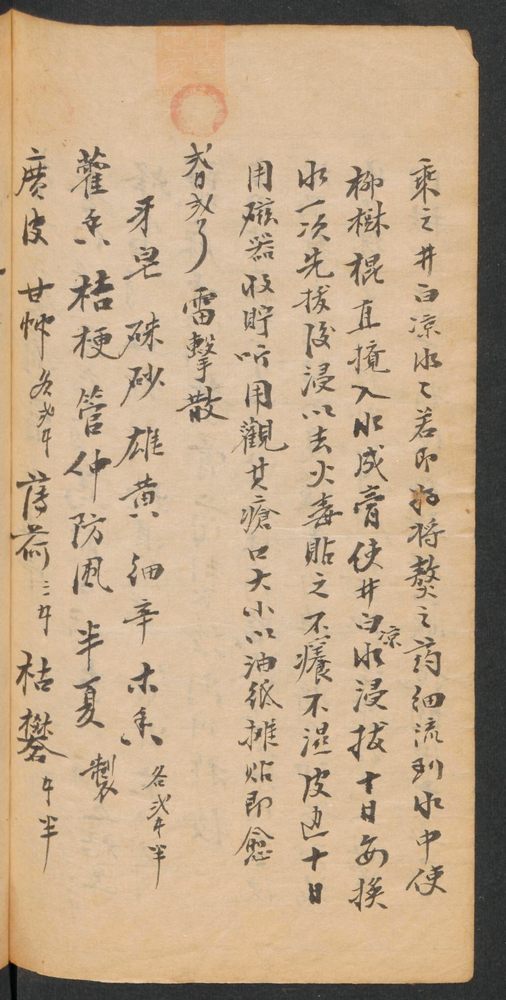 乘之井白涼水之若即將將熬之葯細流到水中使
柳樹棍直攪入水成膏使井白涼水浸拔十日每換
水一次先拔後浸以去火毒貼之不癢不湿皮迊十日
用磁器收貯听用觀其瘡口大小以油紙攤貼即愈
雷擊散
牙皂 硃砂 雄黄 細辛 木香 各弍半
藿香 桔梗 管仲 防風 半夏 製
廣皮 甘艸 各弍 薄荷 三 枯礬 半